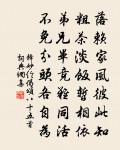 落賴家風彼此知
粗茶淡飯暫相依
弟兄畢竟難同活
不免分頭各自為
釋妙倫偈頌八十五首
詞典網集